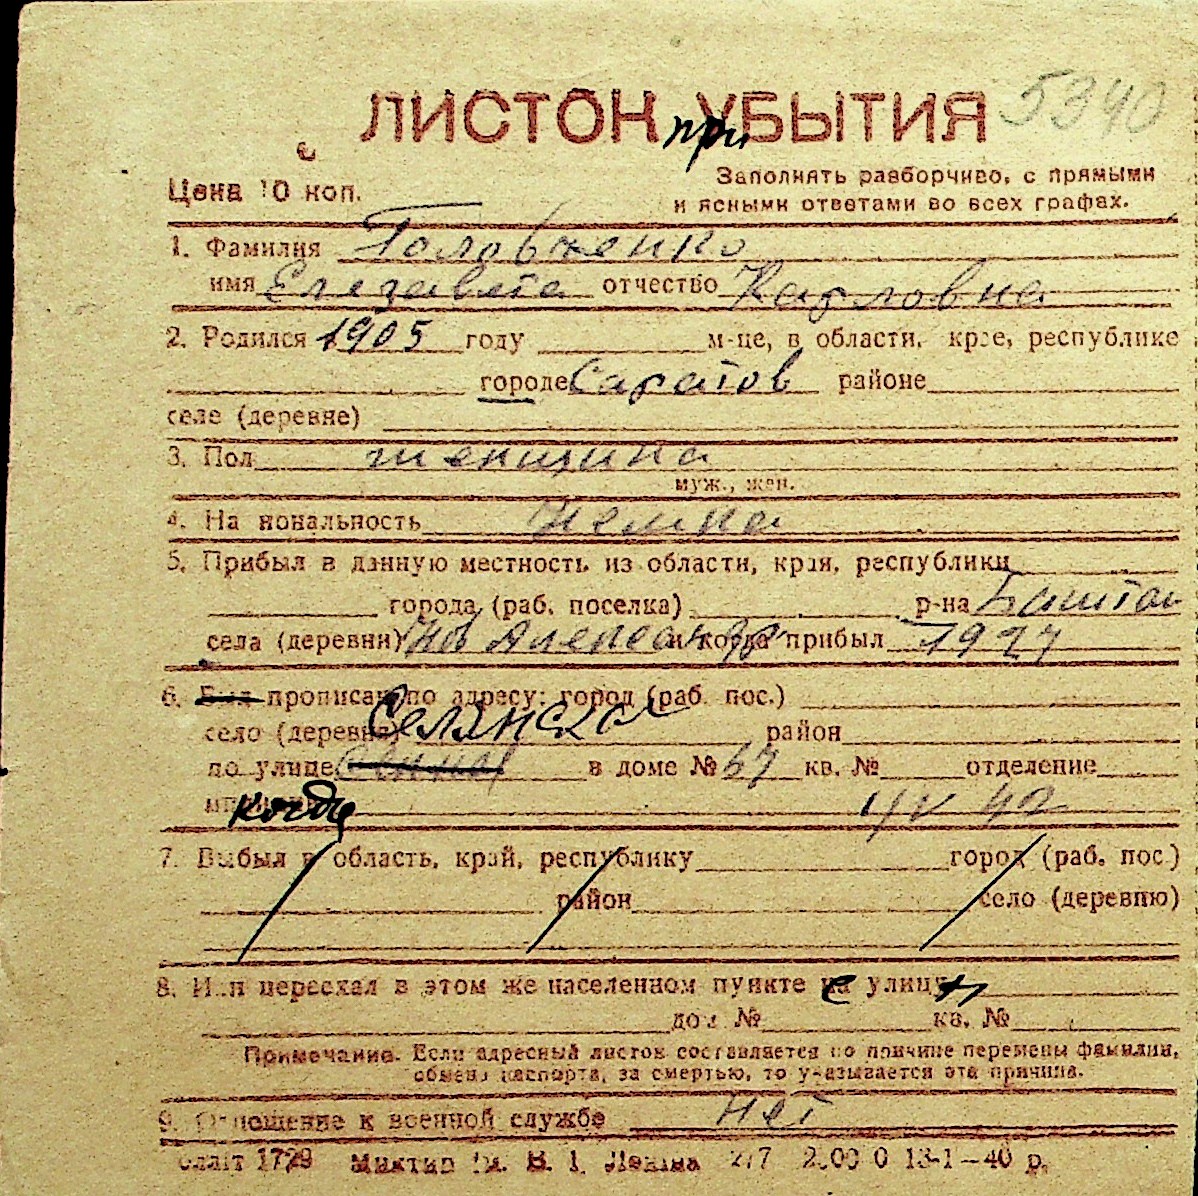 ЛИСТОК при УБЫТИЯ 5340
Цена 10 коп.
Заполнять разборчиво, с прямыми
и ясными ответами во всех графах.
1. Фамилия Головченко
имя Елезавета отчество Карловна
2. Родился 1905 году м-це, в области, крае, республике
городе Саратов районе
селе (деревне)
3. Пол женщина
муж., жен.
4. Национальность Немка
5. Прибыл в данную местность из области, края, республики
города (раб. поселка) р-на Баштан
села (деревни) Нов Александр и когда прибыл 1927
6. Был прописан по адресу: город (раб. пос.)
село (деревня) Селянская район
по улице в доме № 67 кв. № отделение
милиции когда 4/V 42
7. Выбыл в область, край, республику город (раб. пос.)
район село (деревню)
8. Или переехал в этом же населенном пункте с улицы
дом № кв. №
Примечание. Если адресный листок составляется по причине перемены фамилии,
обмена паспорта, за смертью, то указывается эта причина.
9. Отношение к военной службе нет
1729 им. В. І. Леніна 277 13-1—40 р.